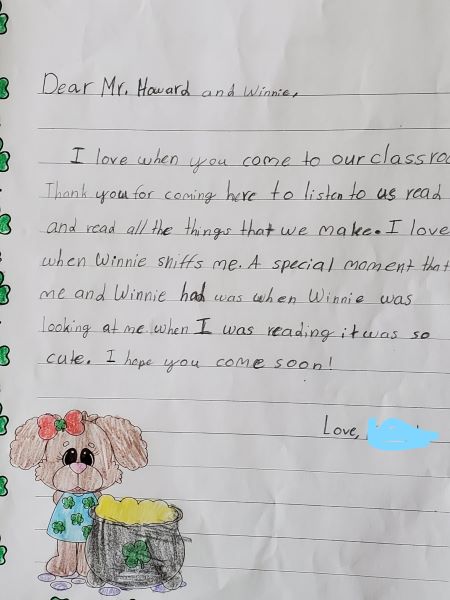 Dear Mr. Howard and Winnie,
I love when you come to our classroo
Thank you for coming here to listen to us read
and read all the things that we make. I love
when Winnie sniffs me. A special moment that
me and Winnie had was when Winnie was
looking at me when I was reading it was so
cute. I hope you come soon!
Love,